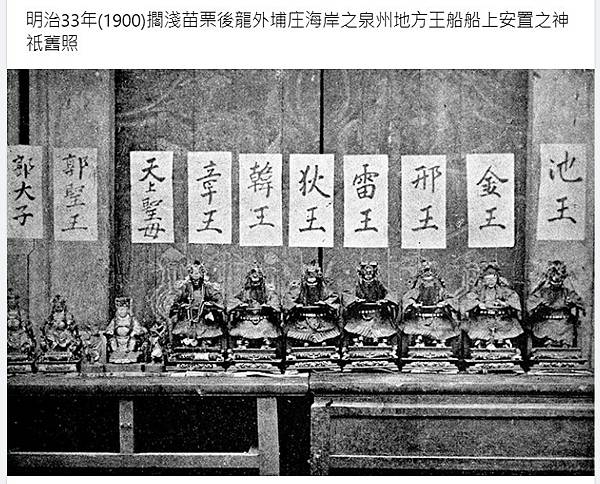 明治33年(1900)擱淺苗栗後龍外埔庄海岸之泉州地方王船船上安置之神
祇舊照
池王
金王
邢王
雷王
狄王
韓王
章王
天上聖母
郭聖王
郭大子